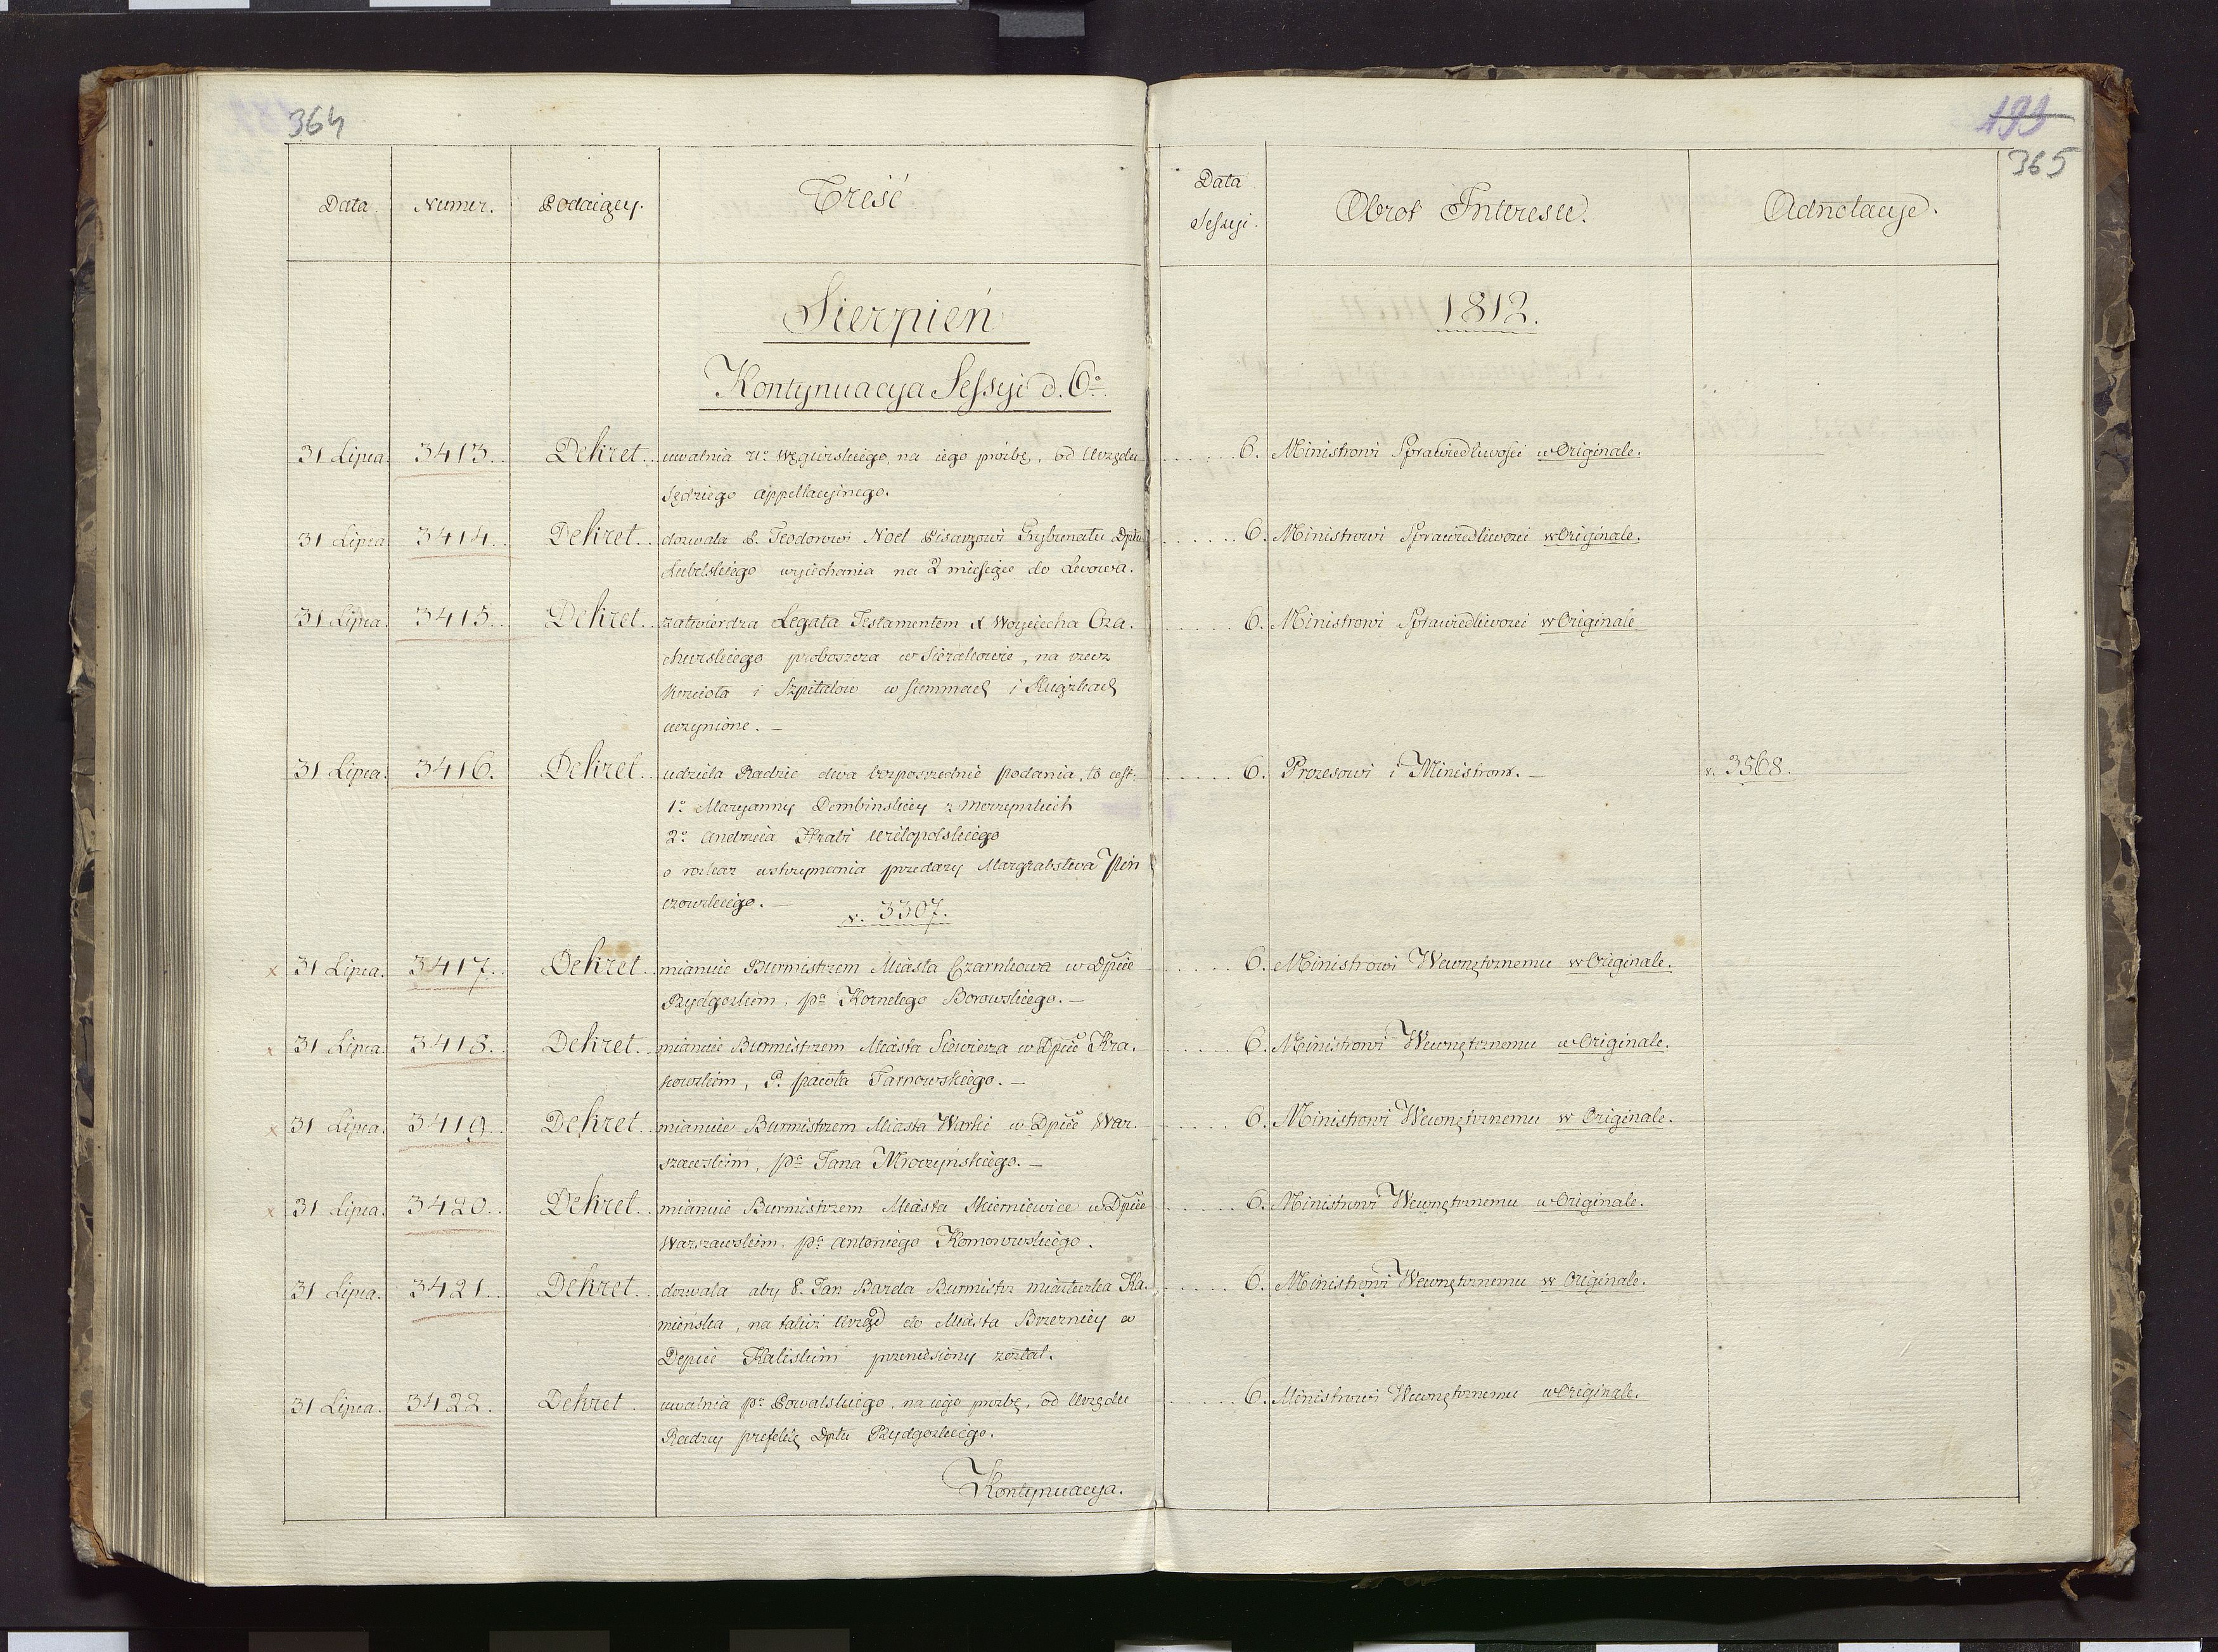 364
199
365
Data. Numer. Podaiący. Treść Data Sessyi. Obrot Interesu. Adnotacye.
Sierpień 1812.
Kontynuacya Sessyi d. 6º
31 Lipca. 3413. Dekret. uwalnia Ur Węgierskiego, na iego prózbę, od Urzędu 6. Ministrowi Sprawiedliwości w Originale.
Sędziego Appellacyinego.
31 Lipca 3414. Dekret. dozwala P. Teodorowi Noel Pisarzowi Trybunału Dptu 6. Ministrowi Sprawiedliwosci w Originale.
Lubelskiego wyiechania na 2 miesiące do Lwowa.
31 Lipca. 3415. Dekret. zatwierdza Legata Testamentem X Woyciecha Cza. 6. Ministrowi Sprawiedliwosci w Originale
churskiego proboszcza w Sierakowie, na rzecz
Koscioła i Szpitalow w i
uczynione. —
31 Lipca. 3416. Dekret udziela Radzie dwa bezposrzednie podania, to iest: 6. Prezesowi i Ministrom. — v. 3568.
1º Maryanny Dembinskiey z
2º Andrzeia Hrabi Wielopolskiego
o rozkaz wstrzymania przedazy Margrabstwa Pin
czowskiego. —
v. 3307.
x 31 Lipca. 3417. Dekret mianuie Burmistrzem Miasta Czarnkowa w Dpcie 6. Ministrowi Wewnętrznemu w Originale.
Bydgoskim, pa Kornelego Borowskiego. —
x 31 Lipca. 3418. Dekret. mianuie Burmistrzem Miasta Siewierza w Dpcie Kra. 6. Ministrowi Wewnętrznemu w Originale.
kowskim, P. Pawła Tarnowskiego. —
x 31 Lipca. 3419. Dekret. mianuie Burmistrzem Miasta Warki w Dpcie War. 6. Ministrowi Wewnętrznemu w Originale.
szawskim, pa Jana Mroczyńskiego. —
x 31 Lipca. 3420. Dekret. mianuie Burmistrzem Miasta Skierniewice w Dpcie 6. Ministrowi Wewnętrznemu w Originale.
Warszawskim, pa Antoniego Komorowskiego.
31 Lipca. 3421. Dekret. dozwala aby P. Jan Barda Burmistrz miasteczka Ka. 6. Ministrowi Wewnętrznemu w Originale.
mienska, na takiż Urząd do Miasta Brzeznicy w
Depcie Kaliskim przeniesiony został.
31 Lipca. 3422. Dekret. uwalnia pa Powalskiego, na iego prozbę, od Urzędu 6. Ministrowi Wewnętrznemu w Originale.
Radzcy prefektę Dptu Bydgoskiego.
Kontynuacya.